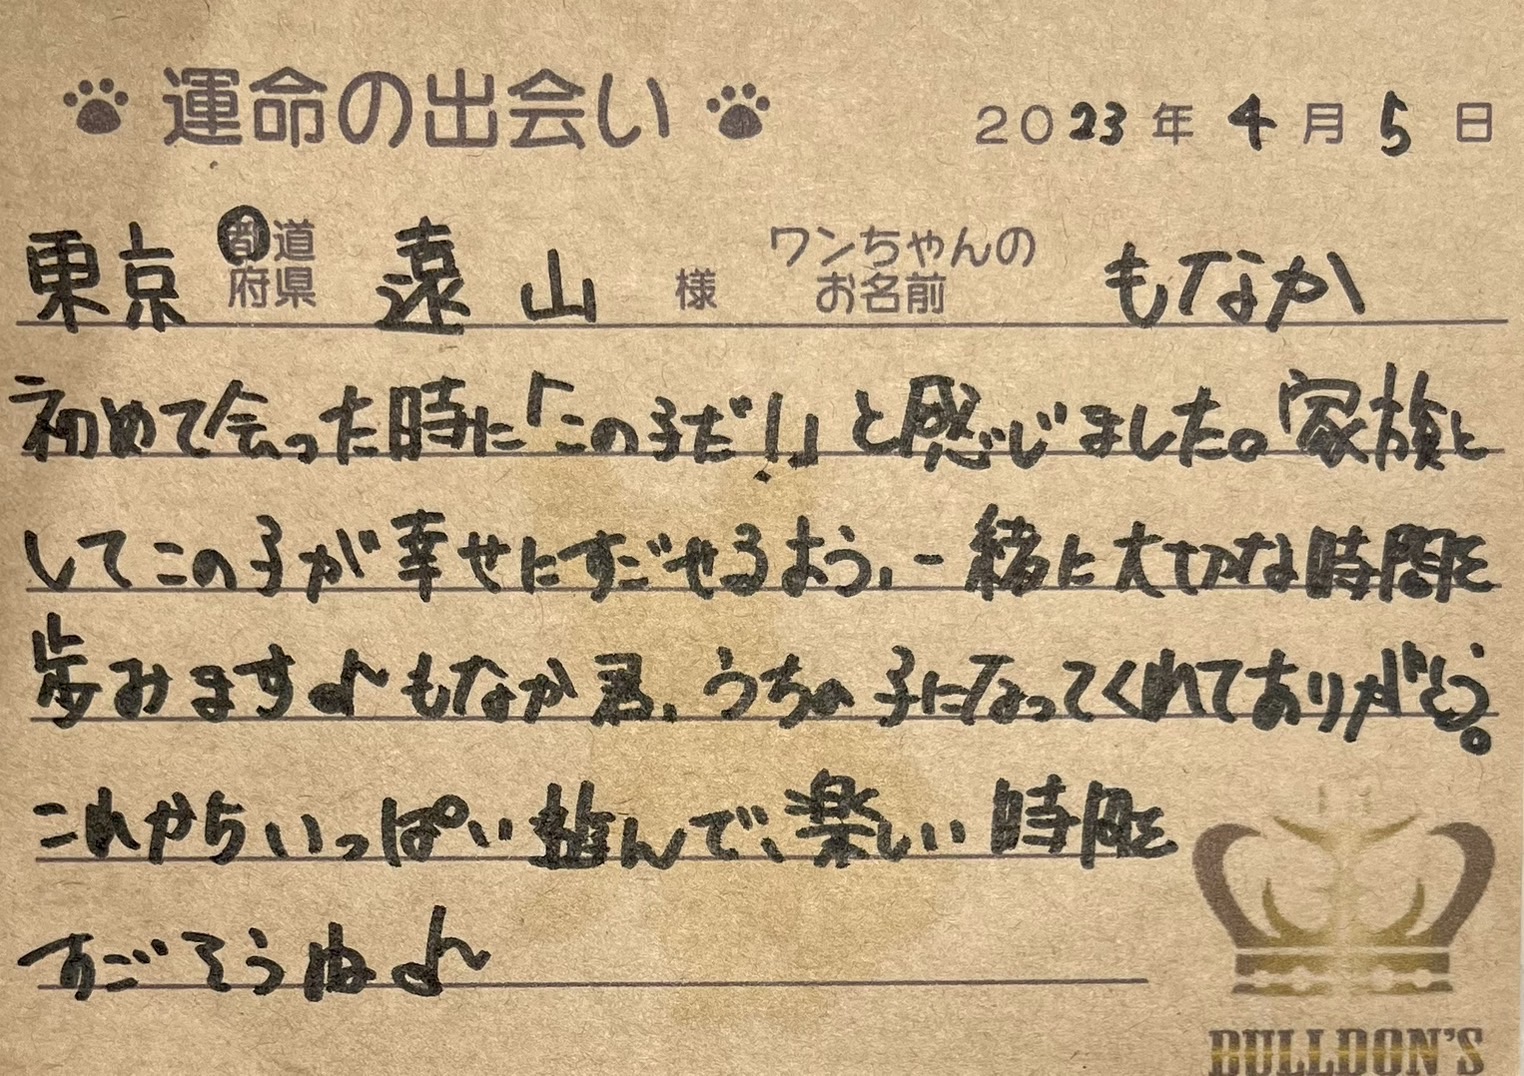 運命の出会い 2023年4月5日
東京 都道府県 遠山 様 ワンちゃんのお名前 もなか
初めて会った時に「この子だ!」と感じました。家族と
してこの子が幸せにすごせるよう、一緒に大切な時間を
歩みます♪もなか君、うちの子になってくれてありがとう。
これからいっぱい遊んで、楽しい時間を
すごそうね♪
BULLDON'S